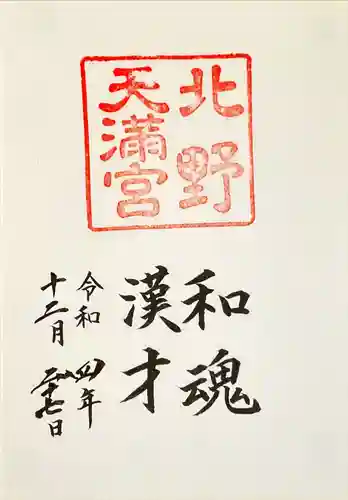 北野
天満宮
和魂
漢才
令和四年
十二月二十七日